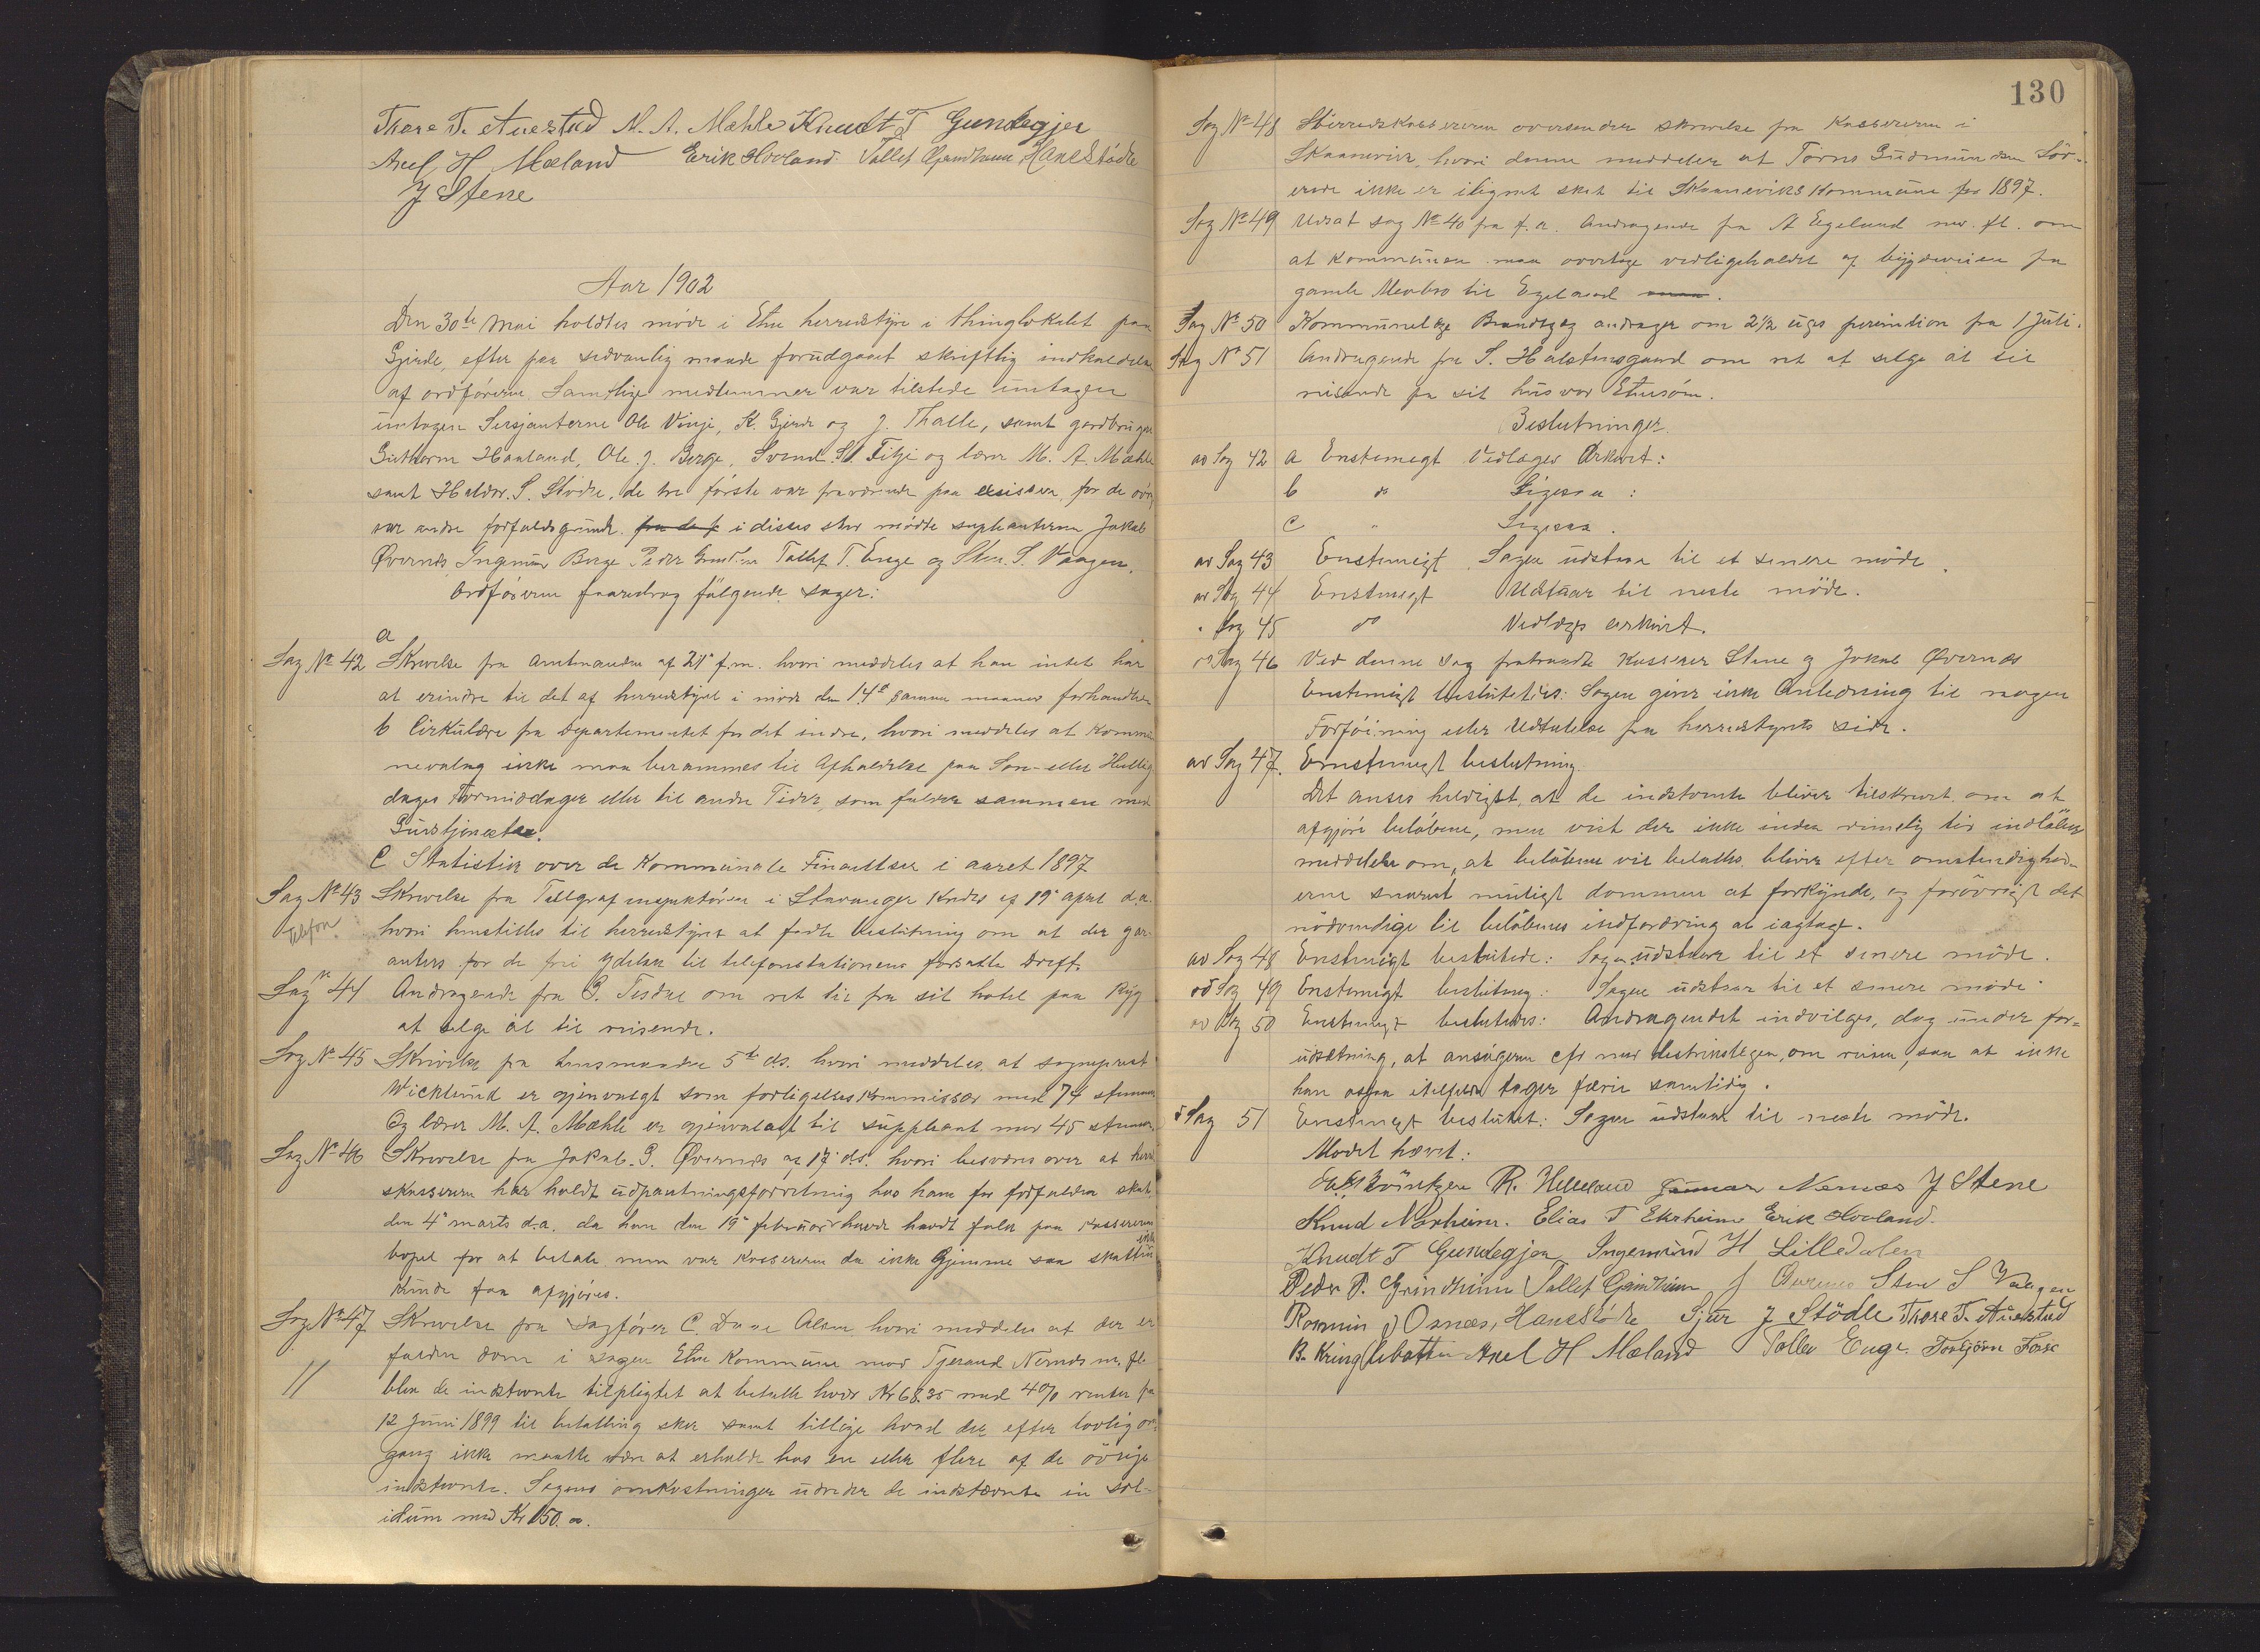 Tore T. Auestad M. A. Mæhle Knudt T Gundegjer
Axel H Mæland Erik Hovland Tollef Grindheim HaneStødle
J Stene
Aar 1902
Den 30te Mai holdtes møde i Etne herredstyre i thinglokalet paa
Gjerde, efter paa sedvanlig maade forudgaaet skriftlig indkaldelse
af ordføreren. Samtlige medlemmer var tilstede untagen
untagen Sersjanterne Ole Vinje, K. Gjerde og J. Thalle, samt gardbruger
Guthorm Haaland, Ole J. Berge, Svend S. Fitje og lærer M. A. Mæhle
samt Haldor S. Stødle, de tre første var fraværende paa exsissen, for de øvrige
var andre forfaldsgrunde. i disses sted mødte suplianterne Jakob
Øvernes Ingemun Berge Peder Grindheim Tollef T. Enge og Sten S. Vaagen.
Ordføreren foredrog følgende sager:
a
Sag No 42 Skrivelse fra Amtmanden af 21 f.m. hvori meddeles at han intet har
at erindre til det af herredstyret i møde den 14de samme maaned forhandlede
b Cirkulære fra Departementet for det indre, hvori meddeles at Kommu
nevalag ikke maa berammes til Afholdelse paa Søn- eller Hellig
dages Formiddager eller til andre Tider, som falder sammen med
Gudstjeneste.
C Statistik over de Kommunale Finantser i aaret 1897
Sag No 43 Skrivelse fra Tellegrafinspektøren i Stavanger Kreds af 19 april d.a.
Telefon hvori henstilles til herredstyret at fatte Beslutning om at der gar-
anteres for de frie ydelser til telefonstationens forsatte drift.
Sag No 44 Andragende fra G. Tesdal om ret til fra sit hotel paa Ryg
at selge øl til reisende.
Sag No 45 Skrivelse fra lensmanden 5te d.s. hvori meddeles at sogneprest
Wicklund er gjenvalgt som forligelseskommissær med 74 stemmer
Og lærer M. A. Mæhle er gjenvalgt til suppleant med 45 stemmer.
Sag No 46 Skrivelse fra Jakob G. Øvernes af 17 d.s. hvori besværes over at herre
skassereren har holdt udpantningsforretning hos ham for forfalden skat
den 4 marts d.a. da han den 19 februar havde havdt folk paa kassererens
bopel for at betale men var Kassereren da ikke hjemme saa skatten ikke
kunde faa afgjøres.
Sag No 47 Skrivelse fra sagfører C. Døse Ølen hvori meddeles at der er
// falden dom i sagen Etne Kommune mod Tjerand Nernes m. fl.
blev de indstevnte tilpligtet at betalle hver Kr 68.35 med 4% renter fra
12 Juni 1899 til betalling sker samt tillige hvad der efter lovlig om-
gang ikke maatte være at erholde hos en eller flere af de øvrige
indstevnte. Sagens omkostninger udreder de indstævnte in sol-
idum med Kr 150.
130
Sag No 48 Herredskassereren oversender skrivelse fra Kassereren i
Skaanevik, hvori denne meddeler at Tørres Gudmundsen Sør-
ikke er ilignet skat til Skaaneviks Kommune for 1897.
Sag No 49 Udsat sag No 40 fra f.a. Andragende fra A Egeland m. fl. om
at Kommunen maa overtage vedligeholdet af bygdeveien fra
gamle Meabro til Egeland.
Sag No 50 Kommunelæge Brandtzæg andrager om 2½ uges permition fra 1 Juli.
Sag No 51 Andragende fra S. Halstensgaard om ret at selge øl til
reisende fra sit hus ved Etnesøen.
Beslutninger.
ad Sag 42 a Enstemegt Vedlæges Arkivet:
b do Ligesaa:
C " Ligesaa.
ad Sag 43 Enstemigt Sagen udstaar til et senere møde.
ad Sag 44 Enstemigt Udstaar til neste møde.
" Sag 45 do Vedlæges arkivet.
ad Sag 46 Ved denne sag fratraadte Kasserer Stene og Jokob Øvernes
Enstemigt besluttedes: Sagen giver ikke Anledning til nogen
Forføining eller Udtalelse fra herredstyrets side.
ad Sag 47. Enstemigt beslutning.
Det anses heldigst, at de indstevnte bliver tilskrevet om at
afgjøre beløbene, men vist der ikke inden rimelig tid indløber
meddelelse om, at beløbene vil betalles, bliver efter omstendighed-
erne snarest muligt dommen at forkynde, og forøvrigt det
nødvendige til beløbenes indfordring at iagtage.
ad Sag 48 Enstemigt besluttede: Sagen udstaar til et senere møde.
ad Sag 49 Enstemigt beslutning: Sagen udstaar til et senere møde.
ad Sag 50 Enstemigt besluttedes: Andragendet indvilges, dog under for-
udsetning, at ansøgeren cfr med distrikslegen, om reisen, saa at ikke
han ogsaa itilfelde tager færie samtidig.
ad Sag 51 Enstemigt besluttet: Sagen udstaar til neste møde.
Mødet hævet:
R. Helleland Gunnar Nernæs J Stene
Knud Norheim. Elias T Ekrheim Erik Hovland.
Knudt T Gundegjer, Ingemund H Lilledalen
Peder P. Grindheim Tollef Grindheim J Øvernes Sten S Vaagen
Rasmus J Osnes, HaneStødle Sjur J Stødle Tore T. Auestad
B. Kringlebotten Axel H Mæland Tollev Enge. Torbjørn Fosse